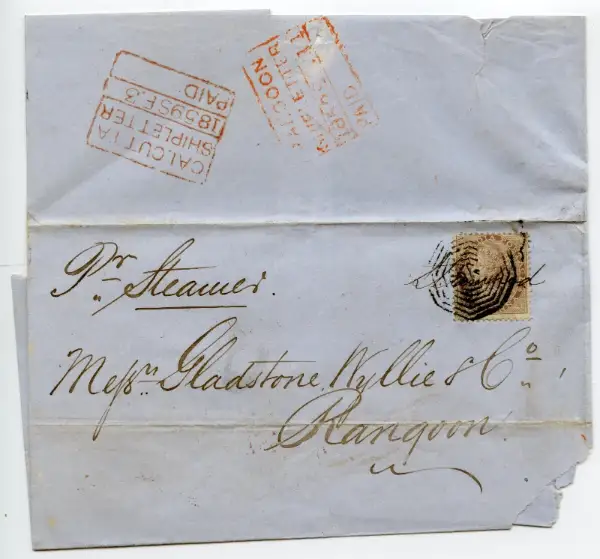 CALCUTTA
SHIP LETTER
1859 SE.3
PAID
LETTER
PAID
Pr Steamer.
Messrs. Gladstone Wyllie & Co.
Rangoon